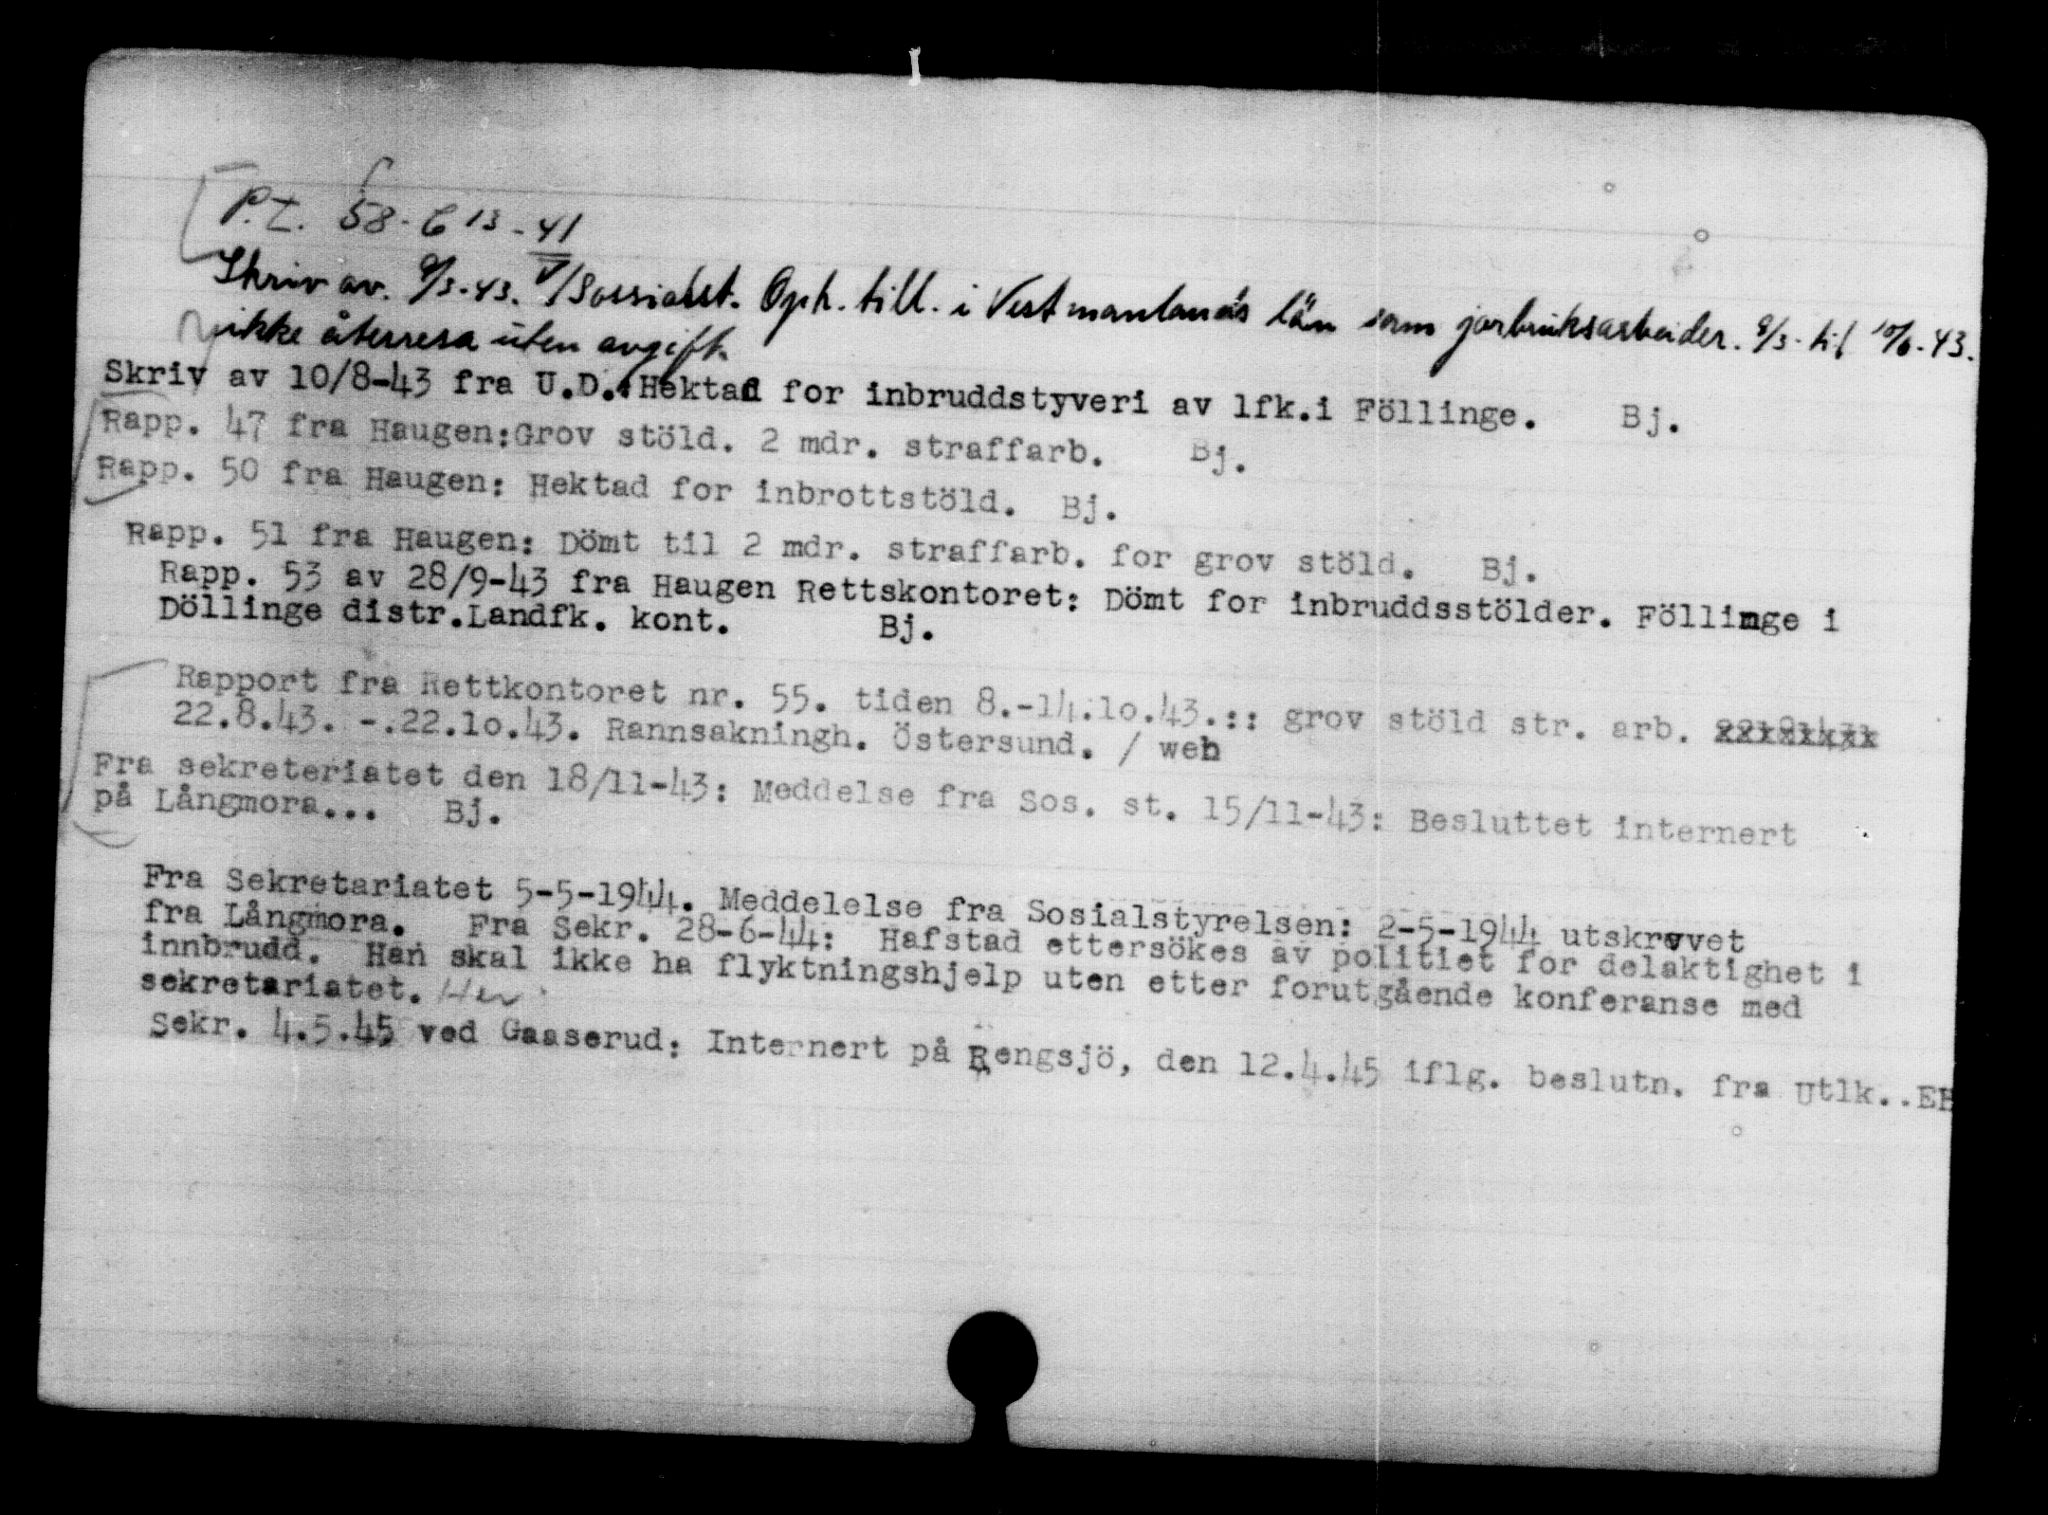 P.t. 58-613-41
Skriv av. 9/3-43. V/Sossialst. Oph. till. i Vestmanlands län som jorbruksarbeider. 9/3- til 10/6-43.
ikke återresa uten avgift.
Skriv av 10/8-43 fra U.D.:Hektad for inbruddstyveri av lfk.i Föllinge. Bj.
Rapp. 47 fra Haugen:Grov stöld. 2 mdr. straffarb. Bj.
Rapp. 50 fra Haugen: Hektad for inbrottstöld. Bj.
Rapp. 51 fra Haugen: Dömt til 2 mdr. straffarb. for grov stöld. Bj.
Rapp. 53 av 28/9-43 fra Haugen Rettskontoret: Dömt for inbruddsstölder. Föllinge i
Döllinge distr.Landfk. kont. Bj.
Rapport fra Rettkontoret nr. 55. tiden 8.-14.10.43.:: grov stöld str. arb.
22.8.43. -.22.10.43. Rannsakningh. Östersund. / weh
Fra sekreteriatet den 18/11-43: Meddelse fra Sos. st. 15/11-43: Besluttet internert
på Långmora... Bj.
Fra Sekretariatet 5-5-1944. Meddelelse fra Sosialstyrelsen: 2-5-1944 utskrevet
fra Långmora. Fra Sekr. 28-6-44: Hafstad ettersökes av politiet for delaktighet i
innbrudd. Han skal ikke ha flyktningshjelp uten etter forutgående konferanse med
sekretariatet.
Sekr. 4.5.45 ved Gaaserud: Internert på Rengsjö, den 12.4.45 iflg. beslutn. fra Utlk..EH